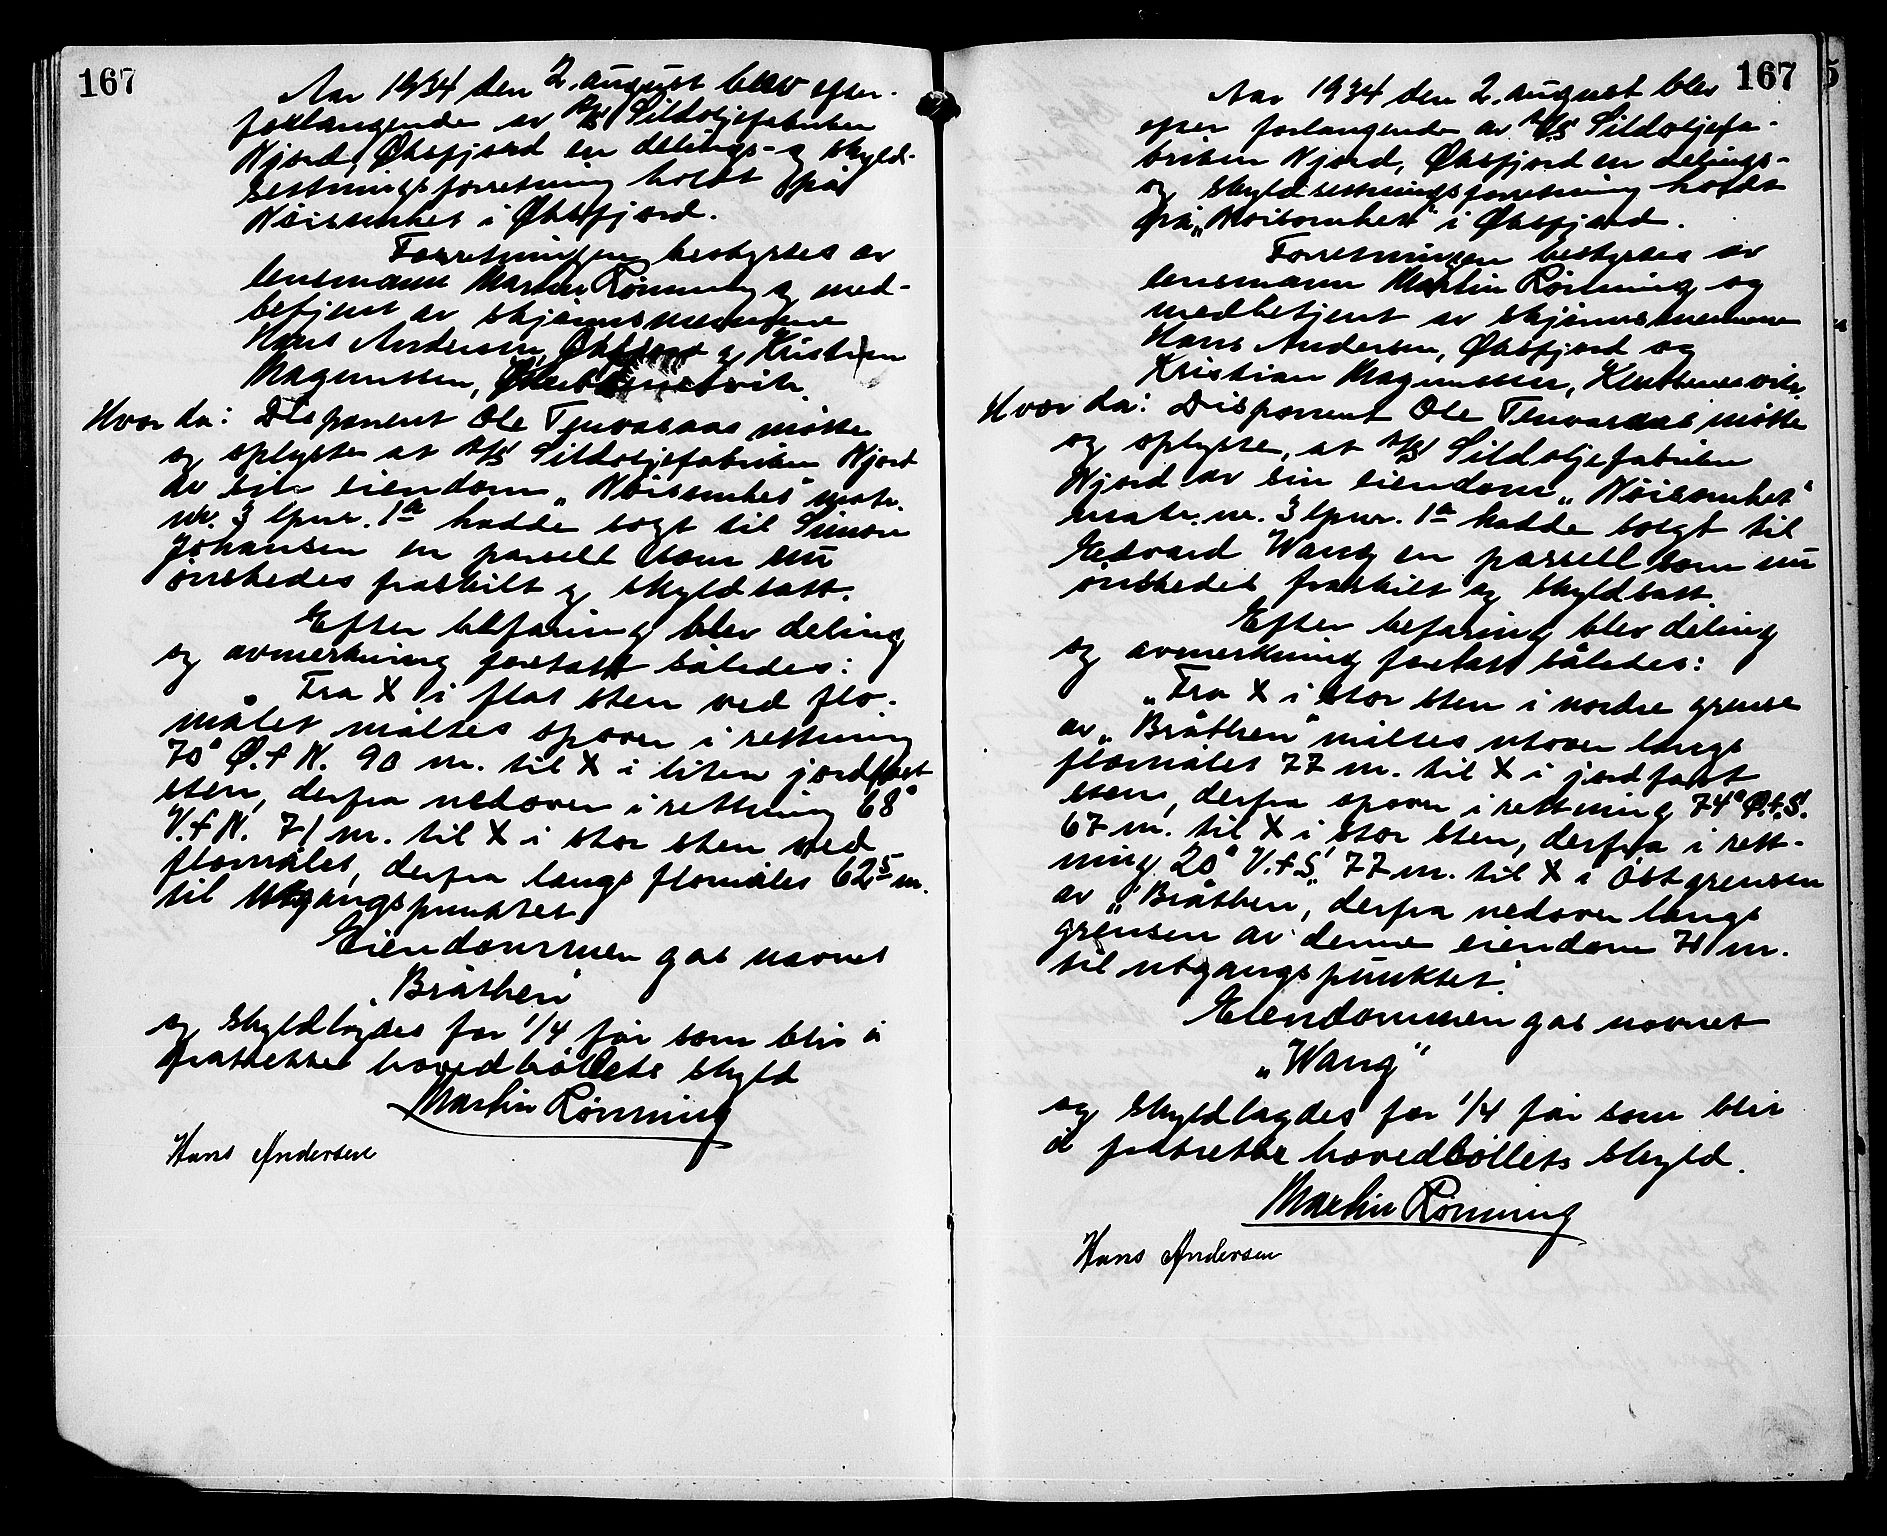 167
Aar 1934 den 2. august blev efter
forlangende av A/S Sildoljefabriken
Njord, Øksfjord en delings- og skyld-
setningsforretning holdt på
Nøisomhet i Øksfjord.
Forretningen bestyrtes av
lensmann Martin Rønning og med-
betjent av skjønnsmennene
Hans Andersen, Øksfjord og Kristian
Magnussen,
Hvor da: Disponent Ole møtte
og oplyste at A/S Sildoljefabriken Njord
av sin eiendom „Nøisomhet" matr.
nr. 3 lpnr. 1a hadde solgt til Simon
Johansen en parsell som nu
ønskedes fraskilt og skyldsatt.
Efter befaring blev deling
og avmerkning foretatt således:
„Fra X i flat sten ved flo-
målet måltes opover i rettning
70° Ø.f N. 90 m. til X i liten jordfast
sten, derfra nedover i rettning 68°
V.f N. 71 m. til X i stor sten ved
flomålet, derfra langs flomålet 625 m.
til utgangspunktet.
Eiendommen gas navnet
„Bråthen"
og skyldlagdes for 1/4 før som blir å
fratrekke hovedbølets skyld
Martin Rønning
Hans Andersen
167
Aar 1934 den 2. august blev
efter forlangende av A/S Sildoljefa-
briken Njord, Øksfjord en delings-
og skyldsetningsforretning holdt
på „Nøisomhet" i Øksfjord.
Forretningen bestyrtes av
lensmann Martin Rønning og
medbetjent av skjønnsmennene
Hans Andersen, Øksfjord og
Kristian Magnussen, Klubbenesvik.
Hvor da: Disponent Ole møtte
og oplyste, at A/S Sildoljefabriken
Njord av sin eiendom „Nøisomhet"
matr. nr. 3 lpnr. 1a hadde solgt til
Edvard Wang en parsell som nu
ønskedes fraskilt og skyldsatt.
Efter befaring blev deling
og avmerkning foretatt således:
„Fra X i stor sten i nordre grense
av „Bråthen" måltes utover langs
flomålet 77 m. til X i jordfast
sten, derfra opover i rettning 74° Ø.f.S.
67 m. til X i stor sten, derfra i rett-
ning 20° V.f S. 77 m. til X i østgrensen
av „Bråthen, derfra nedover langs
grensen av denne eiendom 71 m.
til utgangspunktet."
Eiendommen gas navnet
„Wang"
og skyldlagdes for 1/4 før som blir
å fratrekke hovedbøllets skyld.
Martin Rønning
Hans Andersen